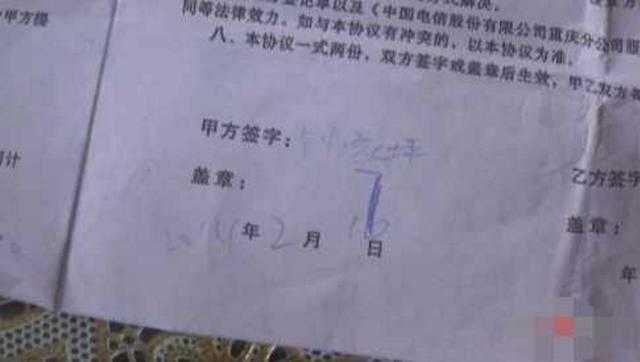 式解决。
登记单以及《中国电信股份有限公司重庆分公司
同等法律效力。如与本协议有冲突的，以本协议为准。
八、本协议一式两份，双方签字或盖章后生效，甲乙双方
中甲方提
甲方签字：
盖章：
7
年2月16日
乙方签字
盖章：
年